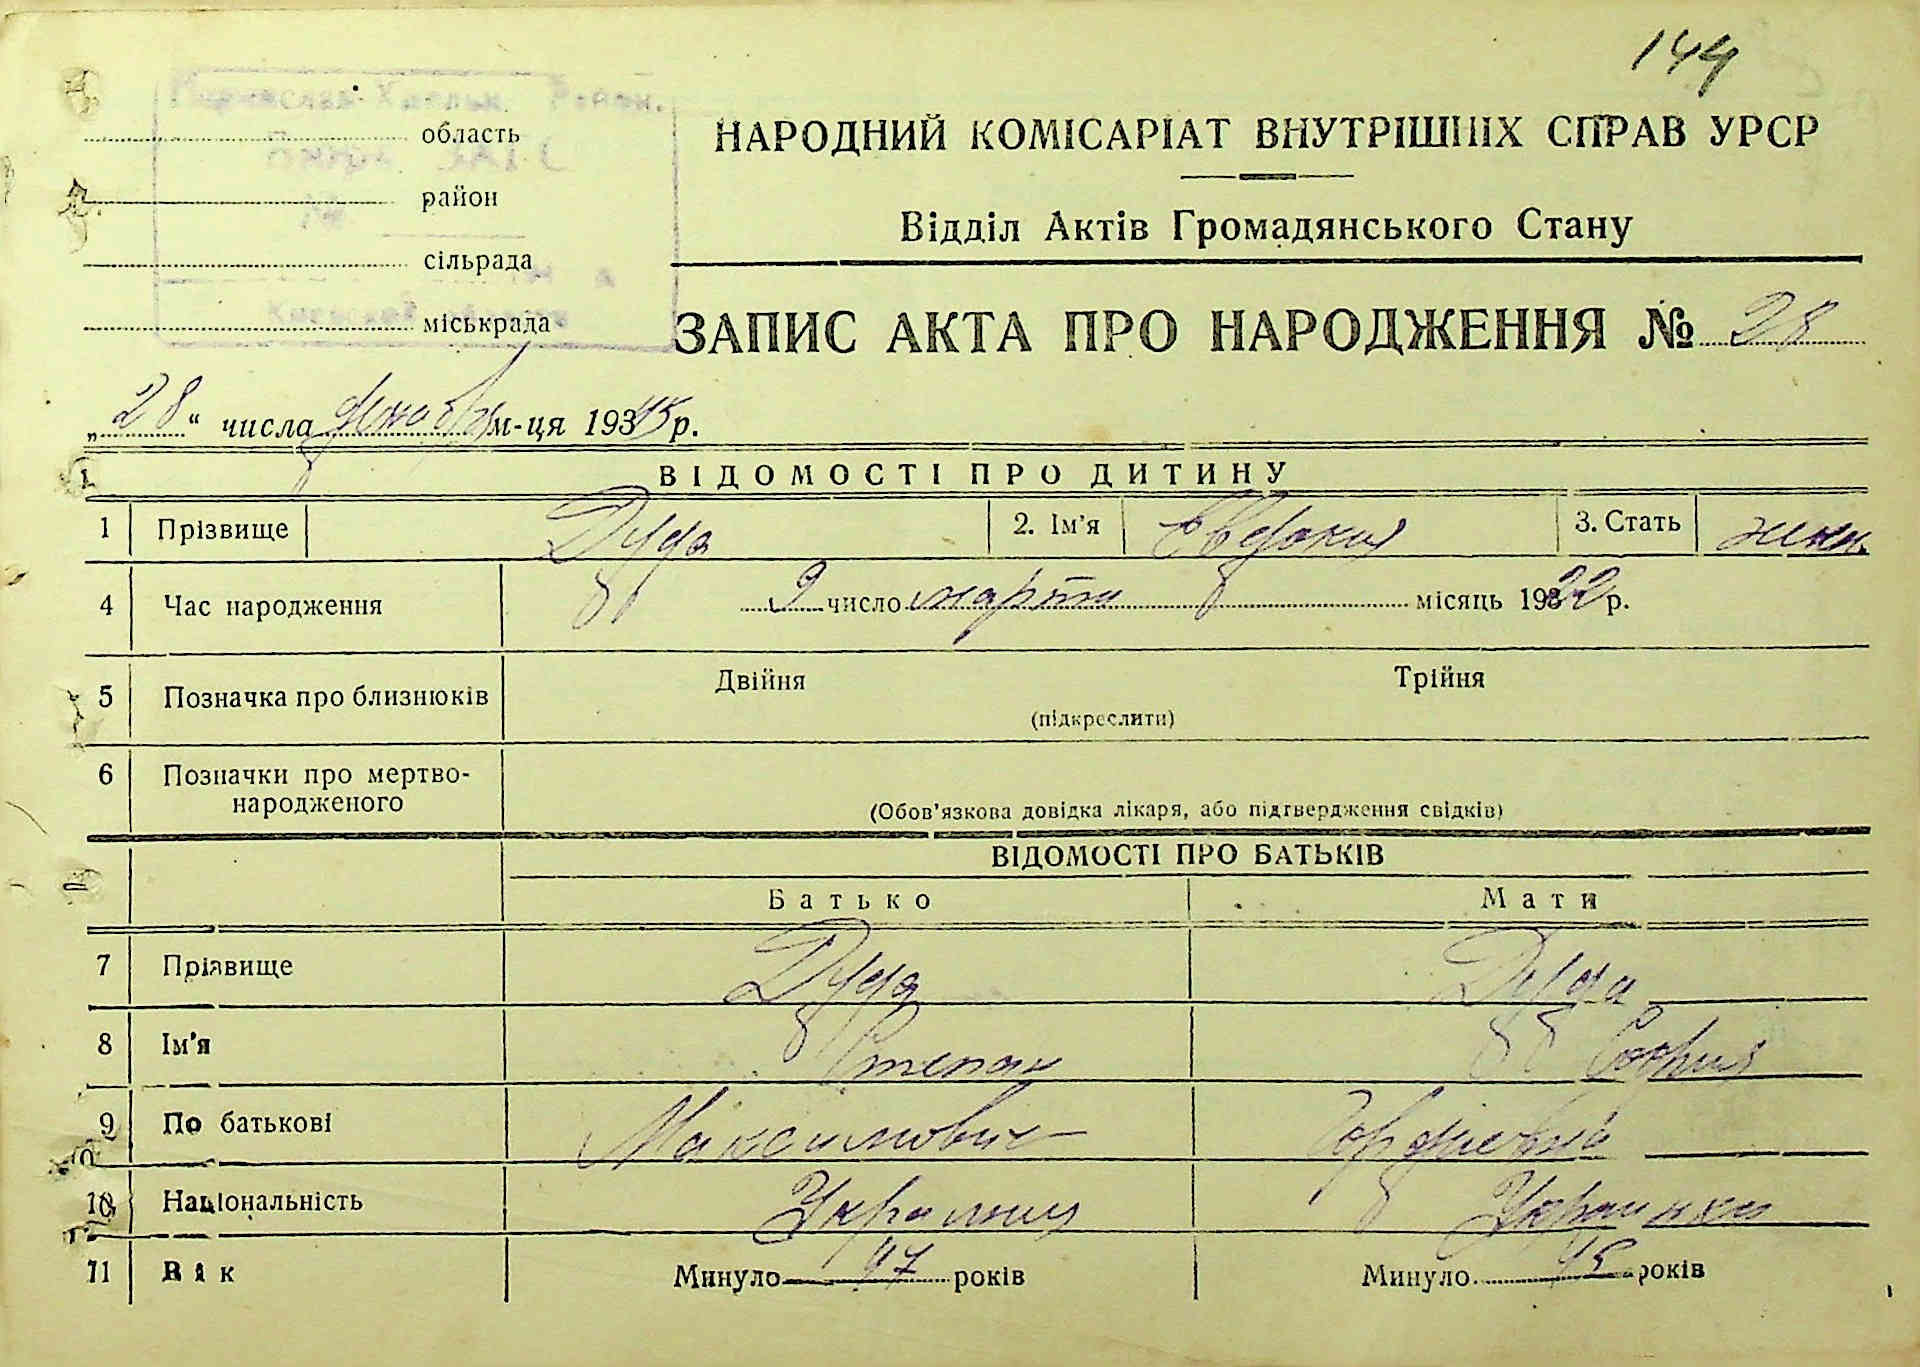 144
Переяслав-Хмельн. Район.
область
Бюро ЗАГС
район
сільрада
міськрада
НАРОДНИЙ КОМІСАРІАТ ВНУТРІШНІХ СПРАВ УРСР
Відділ Актів Громадянського Стану
ЗАПИС АКТА ПРО НАРОДЖЕННЯ № 28
„28“ числа декабря м-ця 1945 р.
ВІДОМОСТІ ПРО ДИТИНУ
1 Прізвище Дуда 2. Ім'я Евдокия 3. Стать женк.
4 Час народження 9 число марта місяць 1922 р.
5 Позначка про близнюків Двійня Трійня
(підкреслити)
6 Позначки про мертво-
народженого
(Обов'язкова довідка лікаря, або підтвердження свідків)
ВІДОМОСТІ ПРО БАТЬКІВ
Батько Мати
7 Прізвище Дуда Дуда
8 Ім'я Степан София
9 По батькові Максимович Гордиевна
10 Національність Украинец Украинка
11 Вік Минуло 47 років Минуло 45 років